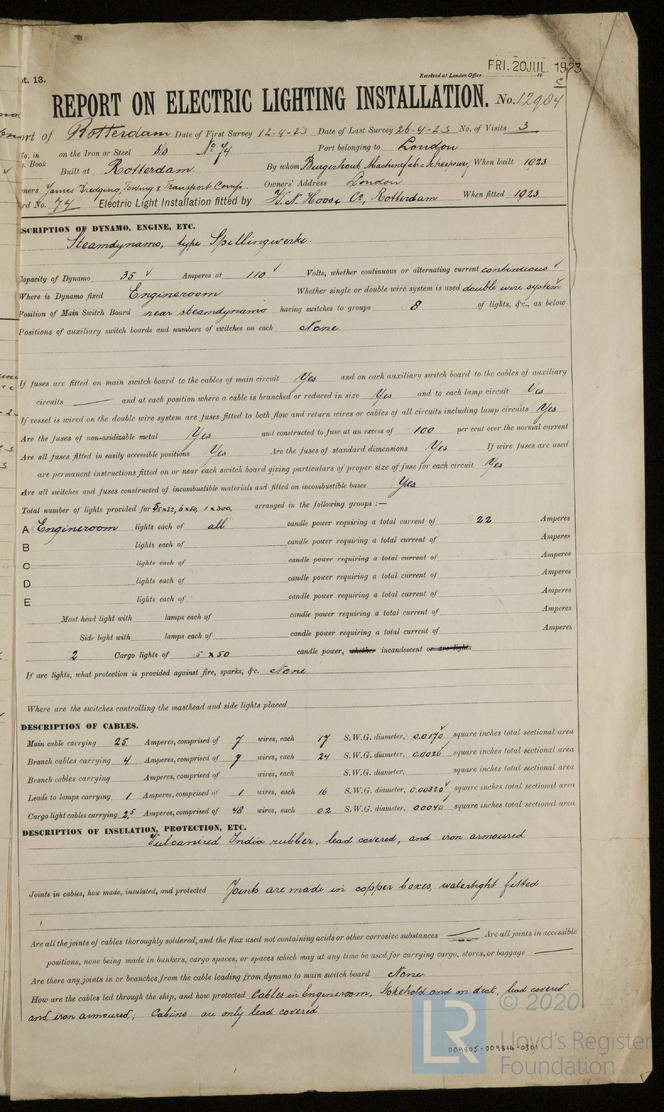 pt. 13.
Received at London Office
FRI. 20 JUL 1923
REPORT ON ELECTRIC LIGHTING INSTALLATION. No. 12984
Port of Rotterdam Date of First Survey 12-4-23 Date of Last Survey 26-4-23 No. of Visits 3
No. in on the Iron or Steel No 74 Port belonging to London
Book Built at Rotterdam By whom When built 1923
Owners James Dredging, Towing & Transport Comp. Owners' Address London
Yard No. 74 Electric Light Installation fitted by Rotterdam When fitted 1923
DESCRIPTION OF DYNAMO, ENGINE, ETC.
Steamdynamo, type Spillingwerke.
Capacity of Dynamo 35 Amperes at 110 Volts, whether continuous or alternating current continuous
Where is Dynamo fixed Engineroom Whether single or double wire system is used double wire system
Position of Main Switch Board near steamdynamo having switches to groups 8 of lights, &c., as below
Positions of auxiliary switch boards and numbers of switches on each None
If fuses are fitted on main switch board to the cables of main circuit Yes and on each auxiliary switch board to the cables of auxiliary
circuits — and at each position where a cable is branched or reduced in size Yes and to each lamp circuit Yes
If vessel is wired on the double wire system are fuses fitted to both flow and return wires or cables of all circuits including lamp circuits Yes
Are the fuses of non-oxidizable metal Yes and constructed to fuse at an excess of 100 per cent over the normal current
Are all fuses fitted in easily accessible positions Yes Are the fuses of standard dimensions Yes If wire fuses are used
are permanent instructions fitted on or near each switch board giving particulars of proper size of fuse for each circuit Yes
Are all switches and fuses constructed of incombustible materials and fitted on incombustible bases Yes
Total number of lights provided for 6 x 50, 1 x 300, arranged in the following groups :—
A Engineroom lights each of all candle power requiring a total current of 22 Amperes
B lights each of candle power requiring a total current of Amperes
C lights each of candle power requiring a total current of Amperes
D lights each of candle power requiring a total current of Amperes
E lights each of candle power requiring a total current of Amperes
Mast head light with lamps each of candle power requiring a total current of Amperes
Side light with lamps each of candle power requiring a total current of Amperes
2 Cargo lights of 5 x 50 candle power, whether incandescent or arc lights
If arc lights, what protection is provided against fire, sparks, &c. None
Where are the switches controlling the masthead and side lights placed
DESCRIPTION OF CABLES.
Main cable carrying 25 Amperes, comprised of 7 wires, each 17 S.W.G. diameter, 0.0170 square inches total sectional area
Branch cables carrying 4 Amperes, comprised of 9 wires, each 24 S.W.G. diameter, 0.0026 square inches total sectional area
Branch cables carrying Amperes, comprised of wires, each S.W.G. diameter, square inches total sectional area
Leads to lamps carrying 1 Amperes, comprised of 1 wires, each 16 S.W.G. diameter, 0.00320 square inches total sectional area
Cargo light cables carrying 2.5 Amperes, comprised of 48 wires, each 0.2 S.W.G. diameter, 0.0040 square inches total sectional area
DESCRIPTION OF INSULATION, PROTECTION, ETC.
Vulcanized India rubber, lead covered, and iron armoured
Joints in cables, how made, insulated, and protected Joints are made in copper boxes, watertight fitted
Are all the joints of cables thoroughly soldered, and the flux used not containing acids or other corrosive substances — Are all joints in accessible
positions, none being made in bunkers, cargo spaces, or spaces which may at any time be used for carrying cargo, stores, or baggage —
Are there any joints in or branches from the cable leading from dynamo to main switch board None
How are the cables led through the ship, and how protected Cables in Engineroom, Stokehold and on deck, lead covered
and iron armoured; Cabins are only lead covered
© 2020
LR
Lloyd's Register
Foundation
009805-009814-0301